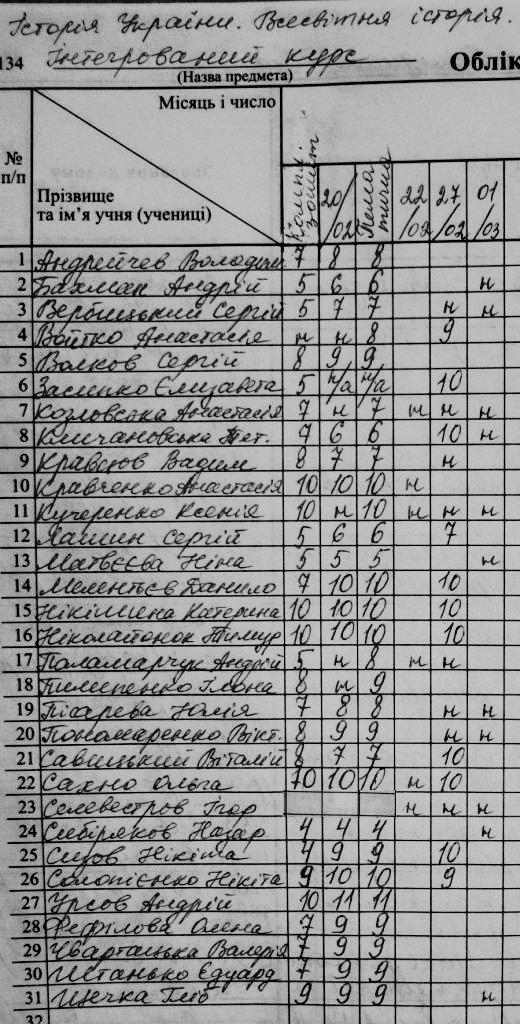 Історія України. Всесвітня історія.
134 Інтегрований курс Облік
(Назва предмета)
Місяць і число
№ п/п
Прізвище та ім'я учня (учениці)
зошит 20/02 Тема тична 22/02 27/02 01/03
1 Андрейчев Володим 7 8 8
2 Бахман Андрій 5 6 6 н
3 Вербицький Сергій 5 7 7 н н
4 Войтко Анастасія н н 8 9
5 Волков Сергій 8 9 9
6 Засипко Єлизавета 5 н/а н/а 10
7 Козловська Анастасія 7 н 7 н н н
8 Кличановська Тет. 7 6 6 10 н
9 Кравцов Вадим 8 7 7 н
10 Кравченко Анастасія 10 10 10 н
11 Кучеренко Ксенія 10 н 10 н н н
12 Лашин Сергій 5 6 6 7
13 Матвєєва Ніна 5 5 5 н
14 Мелентьєв Данило 7 10 10 10
15 Нікішина Катерина 10 10 10 10
16 Ніколайонок Тимур 10 10 10 10
17 Паламарчук Андрій 5 н 8 н н
18 Пилипенко Ілона 8 н 9
19 Пісарева Юлія 7 8 8 н н
20 Пономаренко Вікт. 8 9 9 н н
21 Савицький Віталій 8 7 7 10
22 Сахно Ольга 10 10 10 н 10
23 Селевестров Ігор н н н
24 Сибіряков Назар 4 4 4 н
25 Сизов Нікіта 4 9 9 10
26 Солопієнко Нікіта 9 10 10 9
27 Урсов Андрій 10 11 11
28 Фефілова Олена 7 9 9
29 Чвартацька Валерія 7 9 9
30 Шстанько Едуард 7 9 9
31 Щечка Гліб 9 9 9 н
32